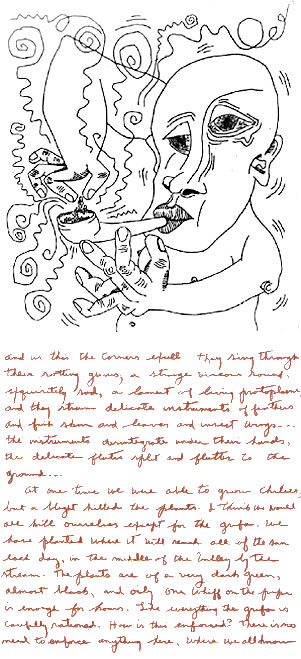 and in this the Corners expell they sing through
their rotting gums, a strange viscous sound,
exquisitely sad, a lament of living protoplasm
and they strum delicate instruments of feathers
and fish skin and leaves and insect wings...
the instruments disintegrate under their hands,
the delicate flutes split and flutter to the
ground...
At one time we were able to grow chilies,
but a blight killed the plants. I think we would
all kill ourselves except for the grifa. We
have planted where it will reach all of the sun
each day, in the middle of the Valley by the
stream. The plants are of a very dark green,
almost black, and only one whiff on the pipe
is enough for hours. Like everything the grifa is
carefully rationed. How is this enforced? There is no
need to enforce anything here, where we all know